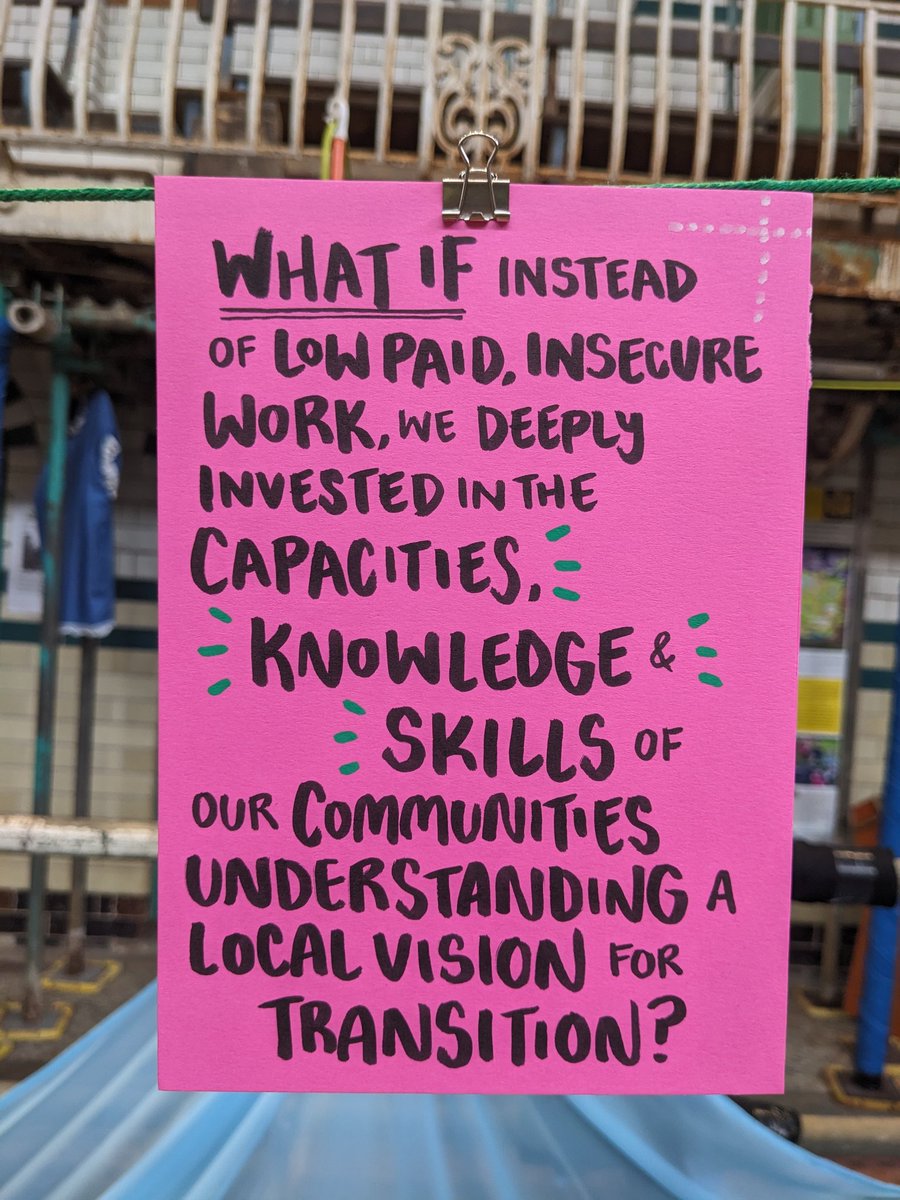 WHAT IF INSTEAD
OF LOW PAID, INSECURE
WORK, WE DEEPLY
INVESTED IN THE
CAPACITIES,
KNOWLEDGE &
SKILLS OF
OUR COMMUNITIES
UNDERSTANDING A
LOCAL VISION FOR
TRANSITION?